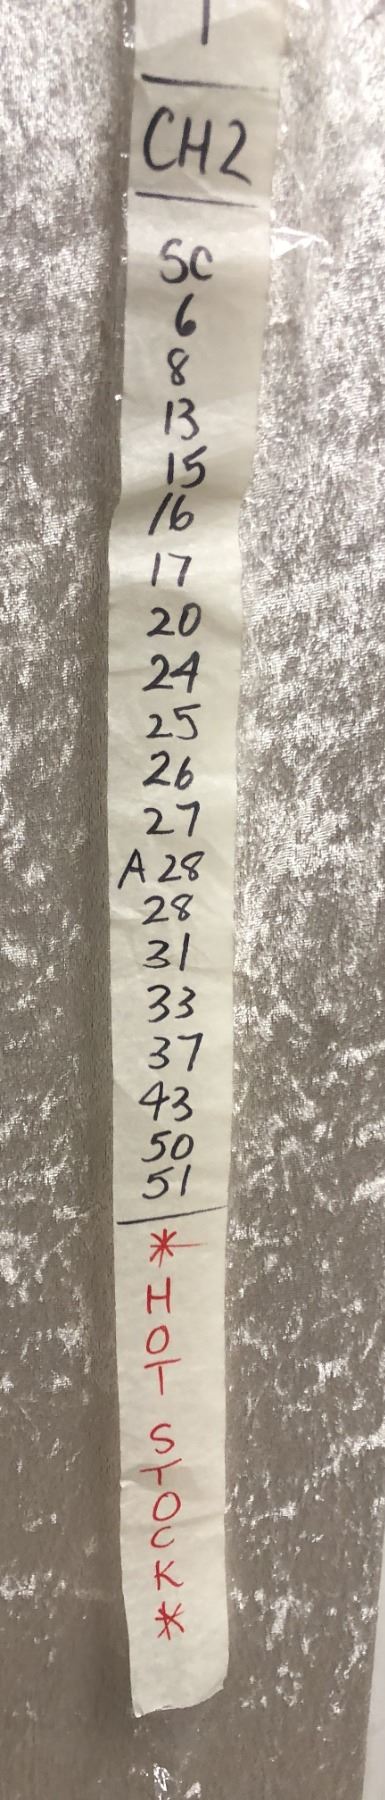 CH2
SC
6
8
13
15
16
17
20
24
25
26
27
A 28
28
31
33
37
43
50
51
*
H
O
T
S
T
O
C
K
*